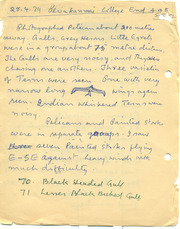 Photographed Pelican about 20 metre
away. Gulls, Grey Herons, Little Egrets
were in a group about 75 metre distance.
The Gulls are very noisy, and
chasing one another. Three varieties
of Terns were seen. One with very
narrow long wings again
seen. Indian Whiskered Tern was
noisy.
Pelicans and Painted Storks
were in separate groups. I saw
seven Painted Storks flying
E-SE against heavy winds with
much difficulty
70 - Black Headed Gull
71. Lesser Black Backed Gull